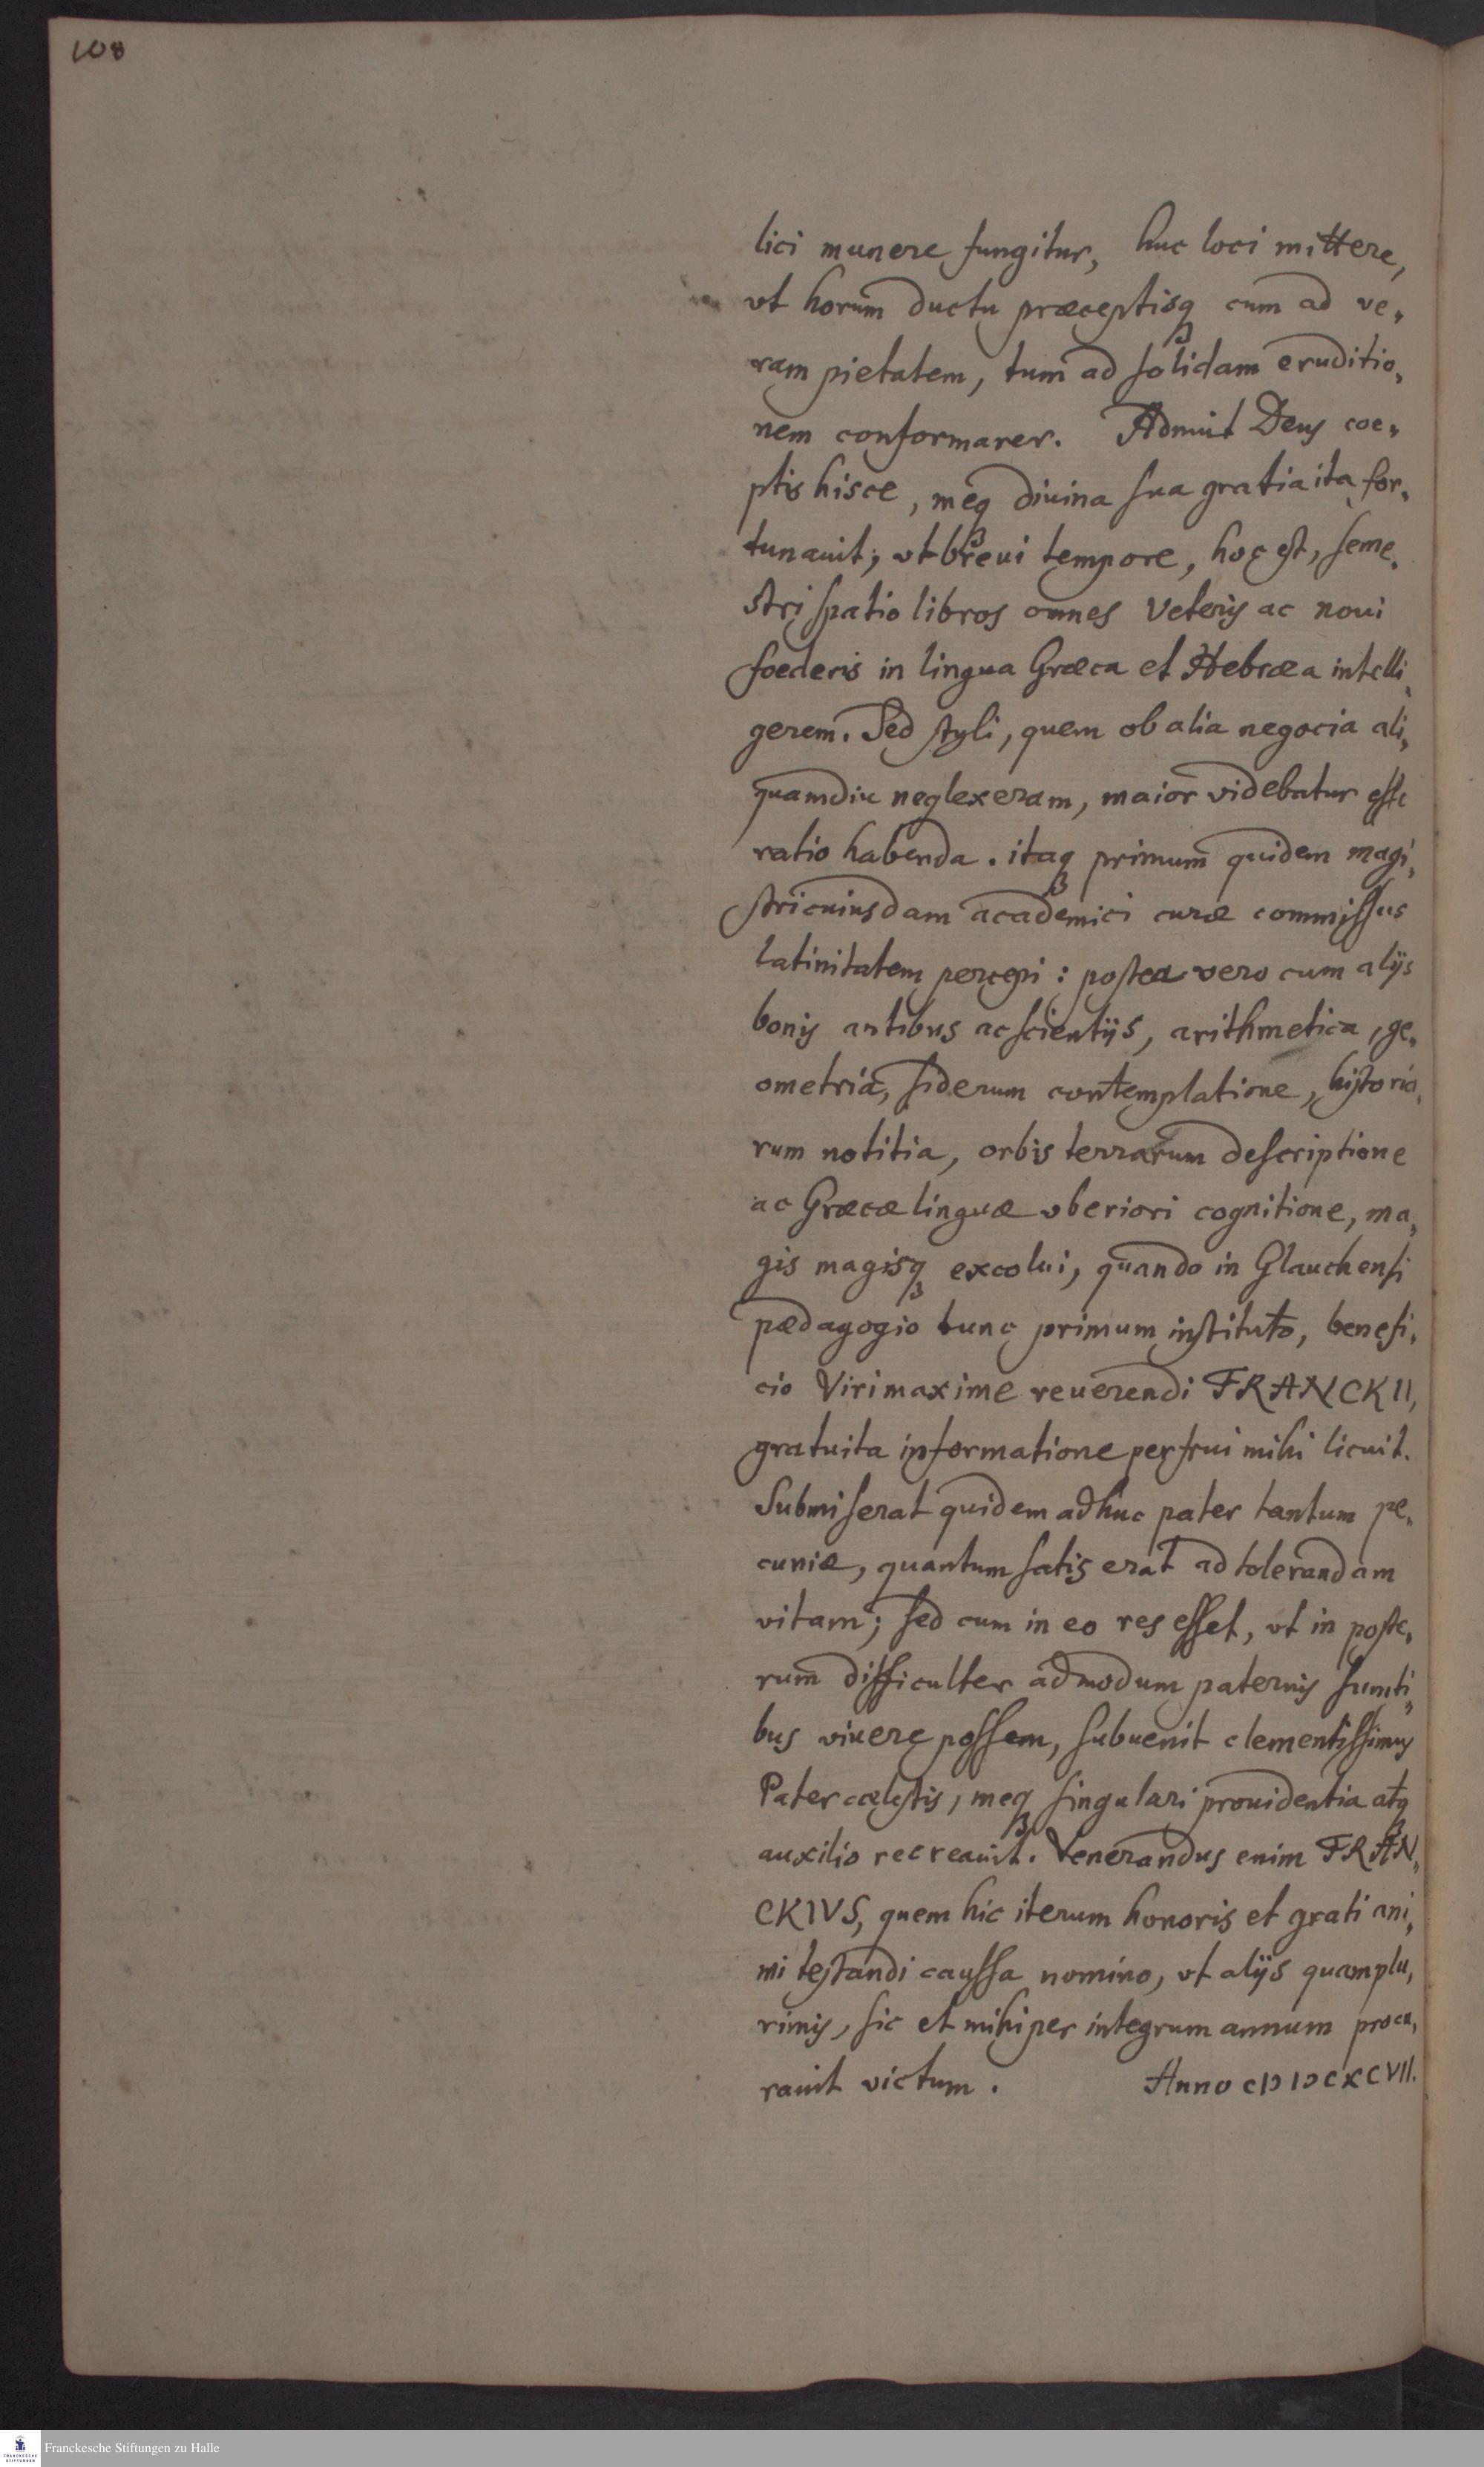 108
lici munere fungitur, huc loci mittere,
vt horum ductu præceptisqꝫ cum ad ve„
ram pietatem, tum ad solidam eruditio„
nem conformarer. Adnuit Deus coe„
ptis hisce, meqꝫ diuina sua gratia ita for„
tunauit; vt breui tempore, hoc est, seme„
stri spatio libros omnes Veteris ac noui
foederis in lingua Græca et Hebræa intelli„
gerem. Sed styli, quem ob alia negocia ali„
quamdiu neglexeram, maior videbatur esse
ratio habenda. itaqꝫ primum quidem magi„
stri cuiusdam academici curæ commissus
latinitatem percepi: postea vero cum alijs
bonis artibus ac scientijs, arithmetica, ge„
ometria, siderum contemplatione, historia„
rum notitia, orbis terrarum descriptione
ac Græcæ linguæ vberiori cognitione, ma„
gis magisqꝫ excolui, quando in Glauchensi
pædagogio tunc primum instituto, benefi„
cio Viri maxime reuerendi FRANCKII,
gratuita informatione perfrui mihi licuit.
Submiserat quidem adhuc pater tantum pe„
cuniæ, quantum satis erat ad tolerandam
vitam; sed cum in eo res esset, vt in poste„
rum difficulter admodum paternis sumti„
bus viuere possem, subuenit clementissimus
Pater cælestis, meqꝫ singulari prouidentia atqꝫ
auxilio recreauit. Venerandus enim FRAN„
CKIVS, quem hic iterum honoris et grati ani„
mi testandi caussa nomino, vt alijs quamplu„
rimis, sic et mihi per integrum annum procu„
rauit victum. Anno cIↃ IↃ CXCVII.
Franckesche Stiftungen zu Halle
FRANCKESCHE
STIFTUNGEN